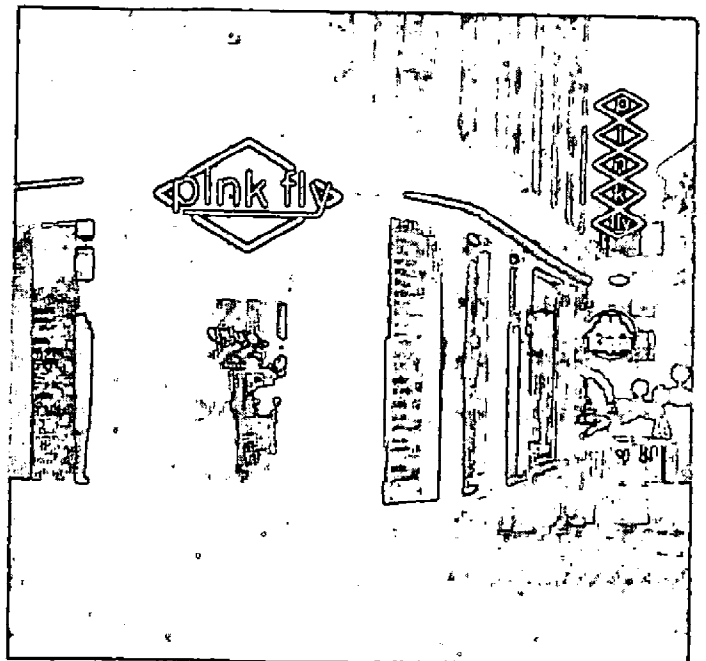 pink fly
p
i
n
k
fly